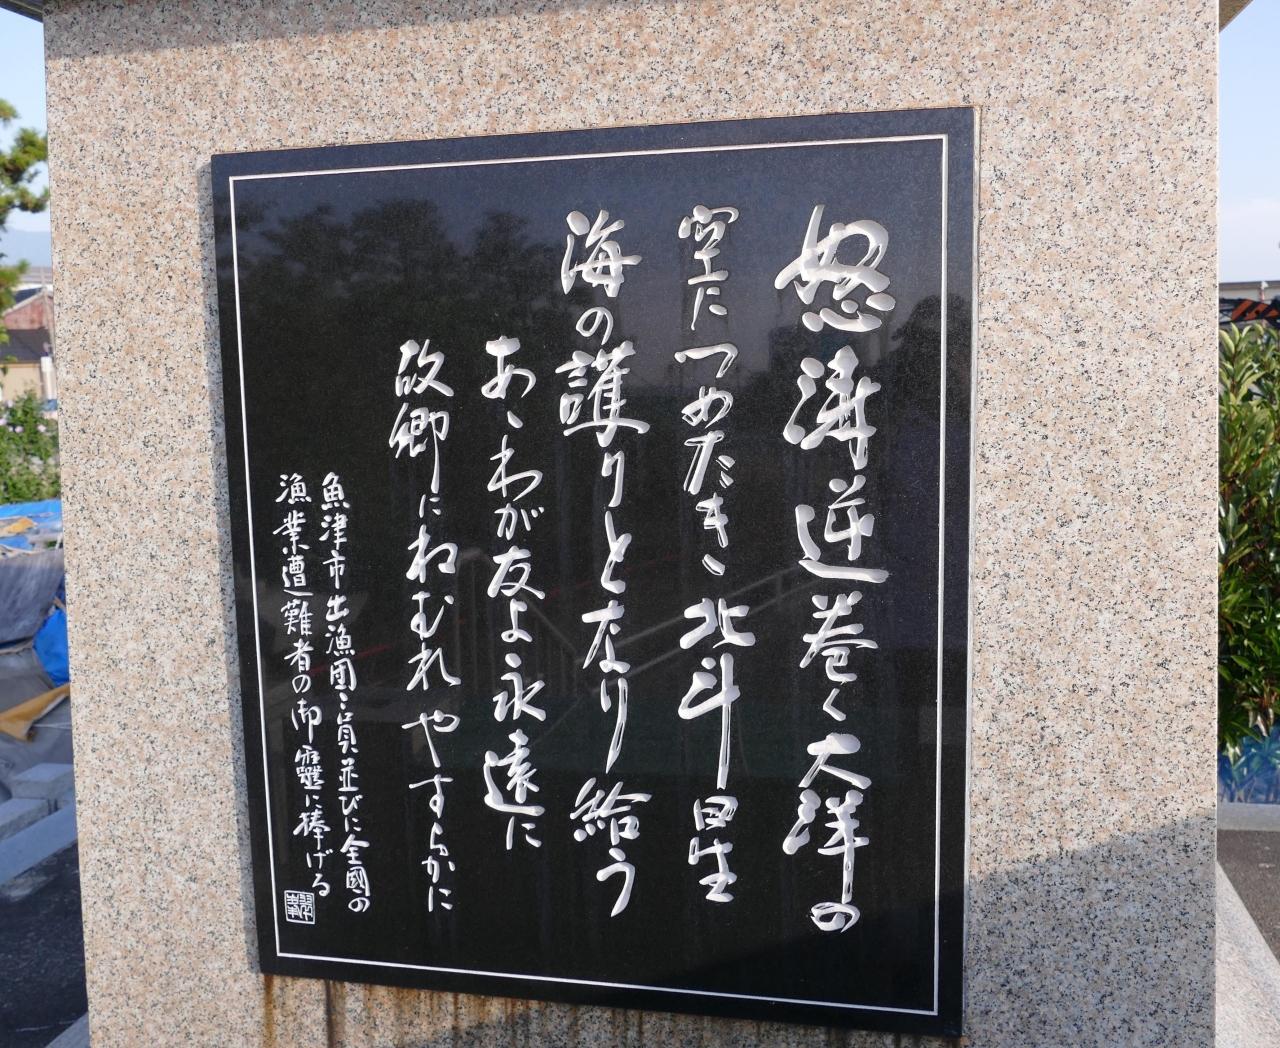 怒濤逆巻く大洋の
空につめたき北斗星
海の護りとなり給う
あゝわが友よ永遠に
故郷にねむれやすらかに
魚津市出漁団々員並びに全國の
漁業遭難者の御靈に捧げる